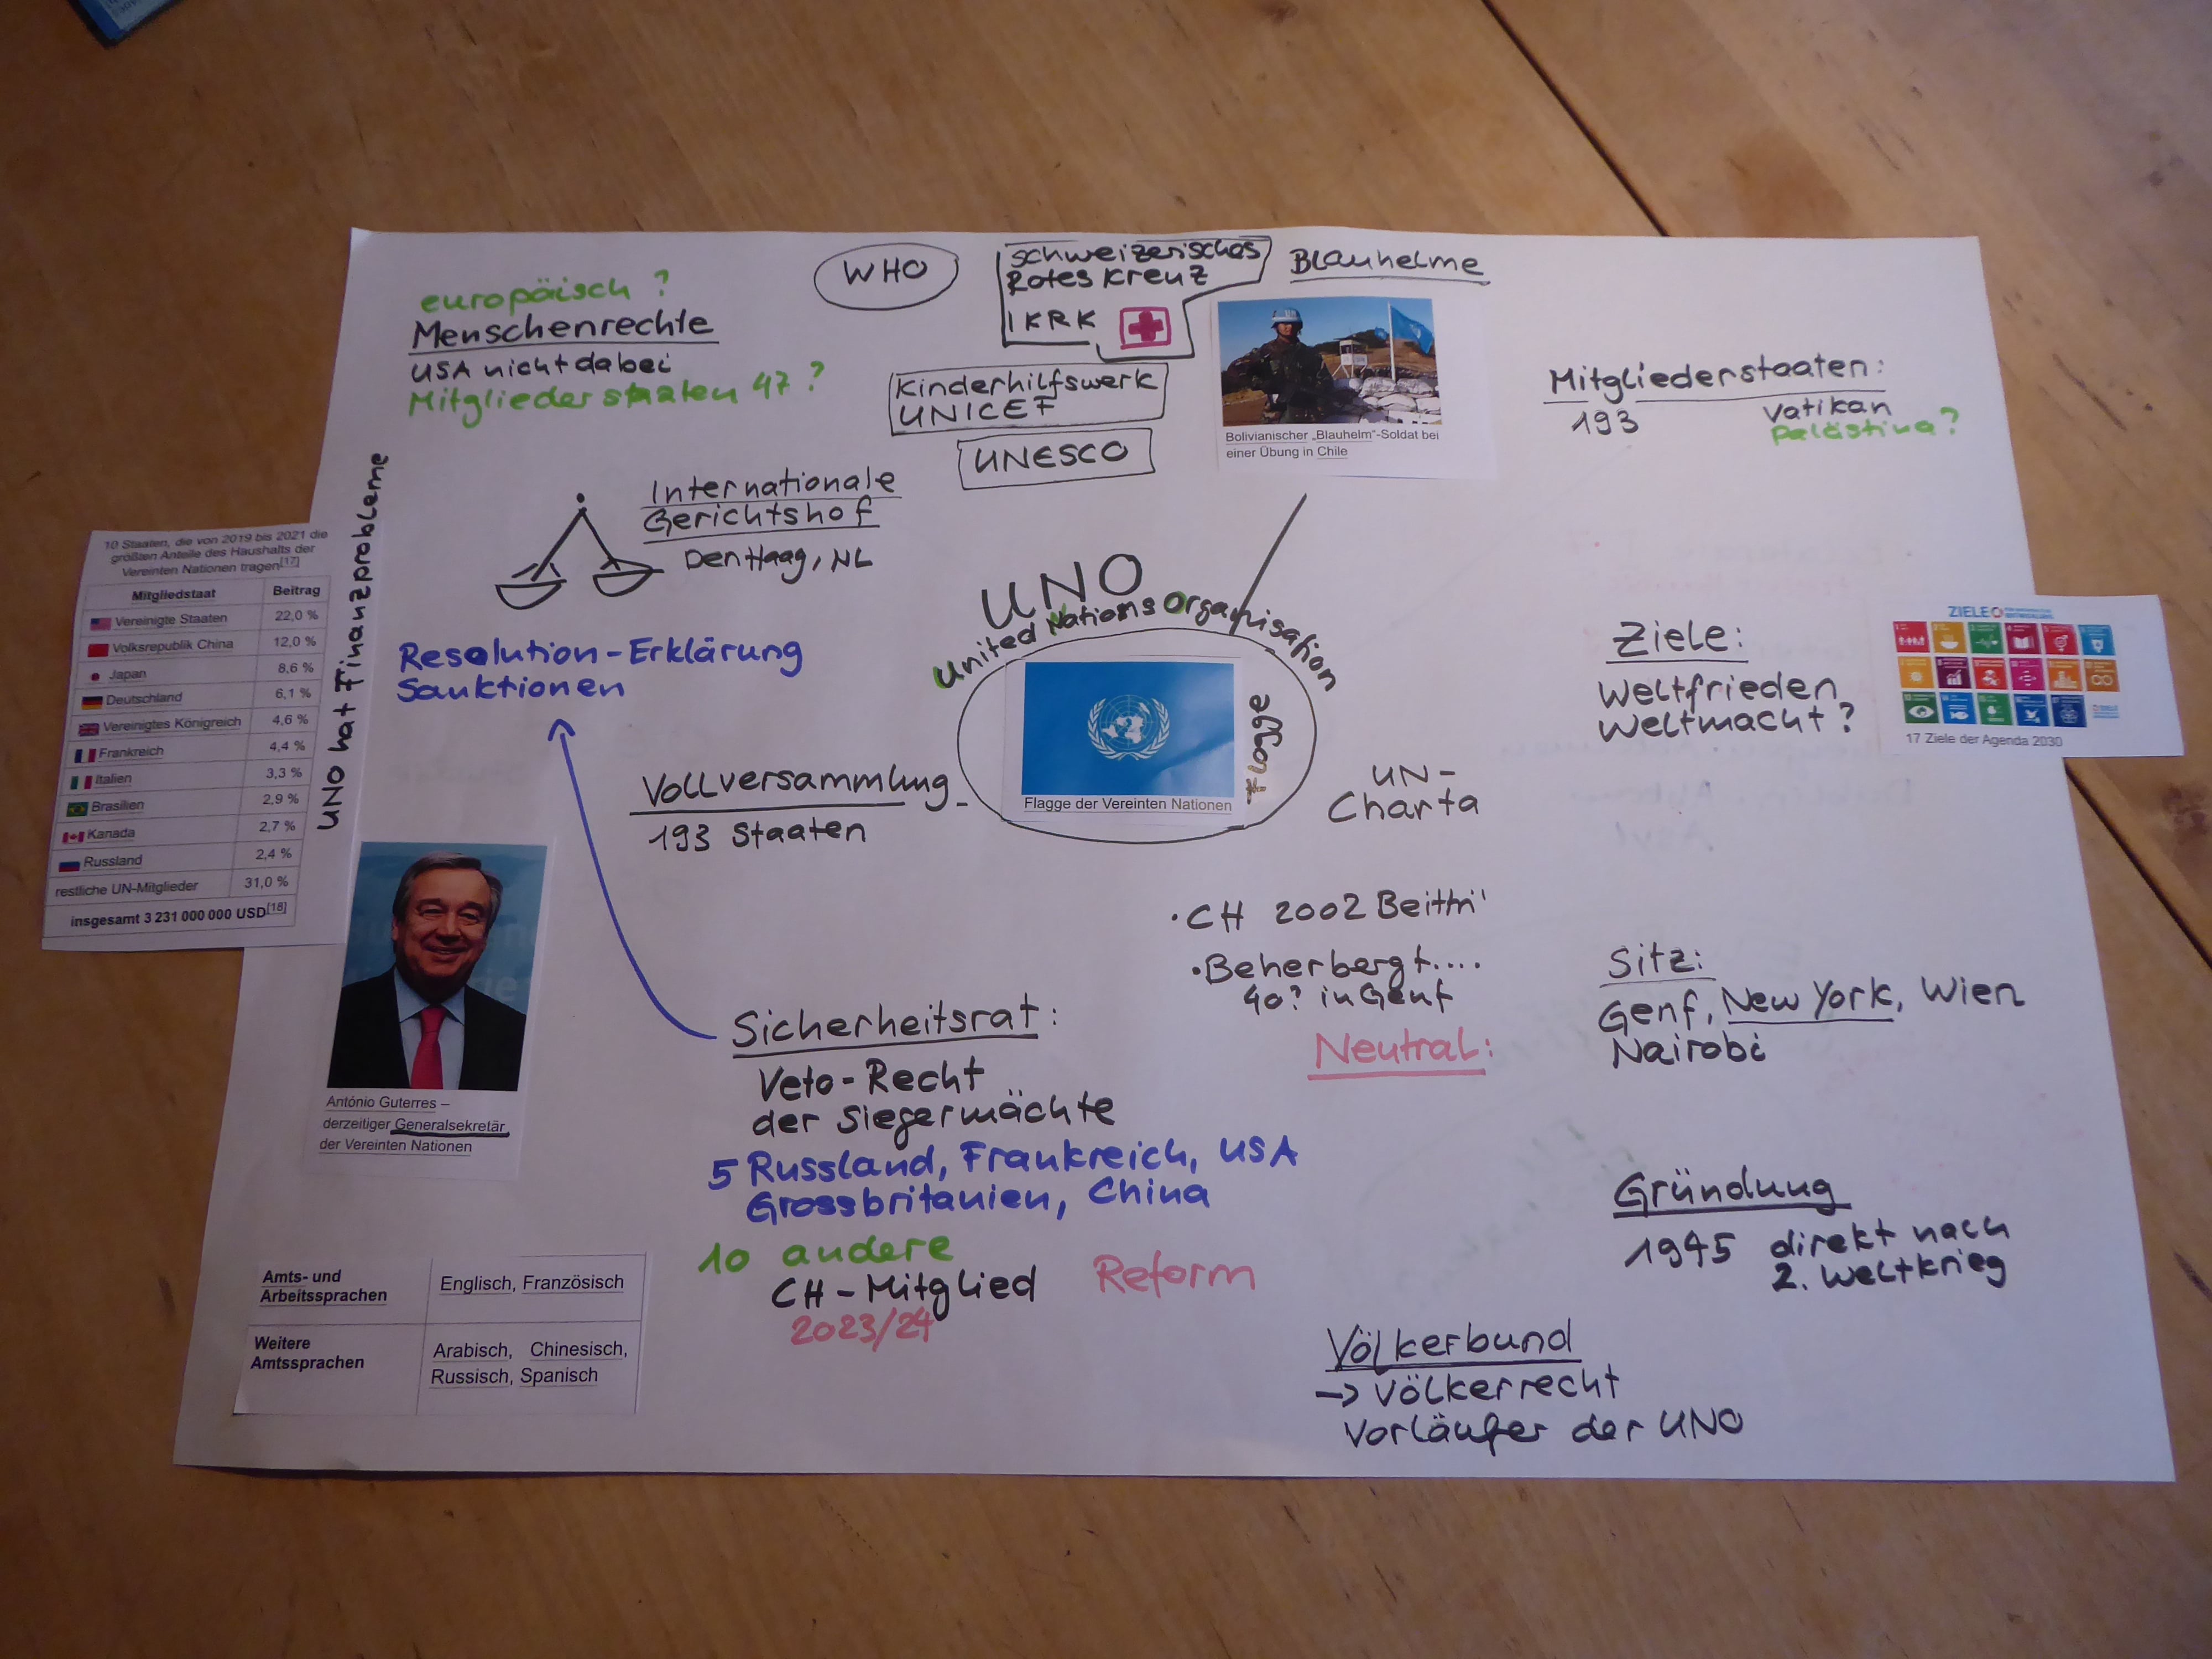 europäisch ?
Menschenrechte
USA nicht dabei
Mitgliederstaaten 47 ?
WHO
schweizerisches
Rotes Kreuz
IKRK
Kinderhilfswerk
UNICEF
UNESCO
Blauhelme
Bolivianischer „Blauhelm"-Soldat bei
einer Übung in Chile
Mitgliederstaaten:
193 Vatikan
Palästina?
Internationale
Gerichtshof
Den Haag, NL
UNO
United Nations Organisation
Flagge
Flagge der Vereinten Nationen
Ziele:
Weltfrieden
Weltmacht?
ZIELE
17 Ziele der Agenda 2030
UNO hat Finanzprobleme
10 Staaten, die von 2019 bis 2021 die
größten Anteile des Haushalts der
Vereinten Nationen tragen[17]
Mitgliedstaat Beitrag
Vereinigte Staaten 22,0 %
Volksrepublik China 12,0 %
Japan 8,6 %
Deutschland 6,1 %
Vereinigtes Königreich 4,6 %
Frankreich 4,4 %
Italien 3,3 %
Brasilien 2,9 %
Kanada 2,7 %
Russland 2,4 %
restliche UN-Mitglieder 31,0 %
insgesamt 3 231 000 000 USD[18]
Resolution - Erklärung
Sanktionen
Vollversammlung
193 Staaten
UN-
Charta
António Guterres –
derzeitiger Generalsekretär
der Vereinten Nationen
• CH 2002
• Beherbergt....
40? in Genf
Neutral:
Sitz:
Genf, New York, Wien
Nairobi
Sicherheitsrat:
Veto-Recht
der Siegermächte
5 Russland, Frankreich, USA
Grossbritanien, China
10 andere
CH-Mitglied
2023/24
Reform
Gründung
1945 direkt nach
2. Weltkrieg
Völkerbund
-> Völkerrecht
Vorläufer der UNO
Amts- und
Arbeitssprachen
Englisch, Französisch
Weitere
Amtssprachen
Arabisch, Chinesisch,
Russisch, Spanisch